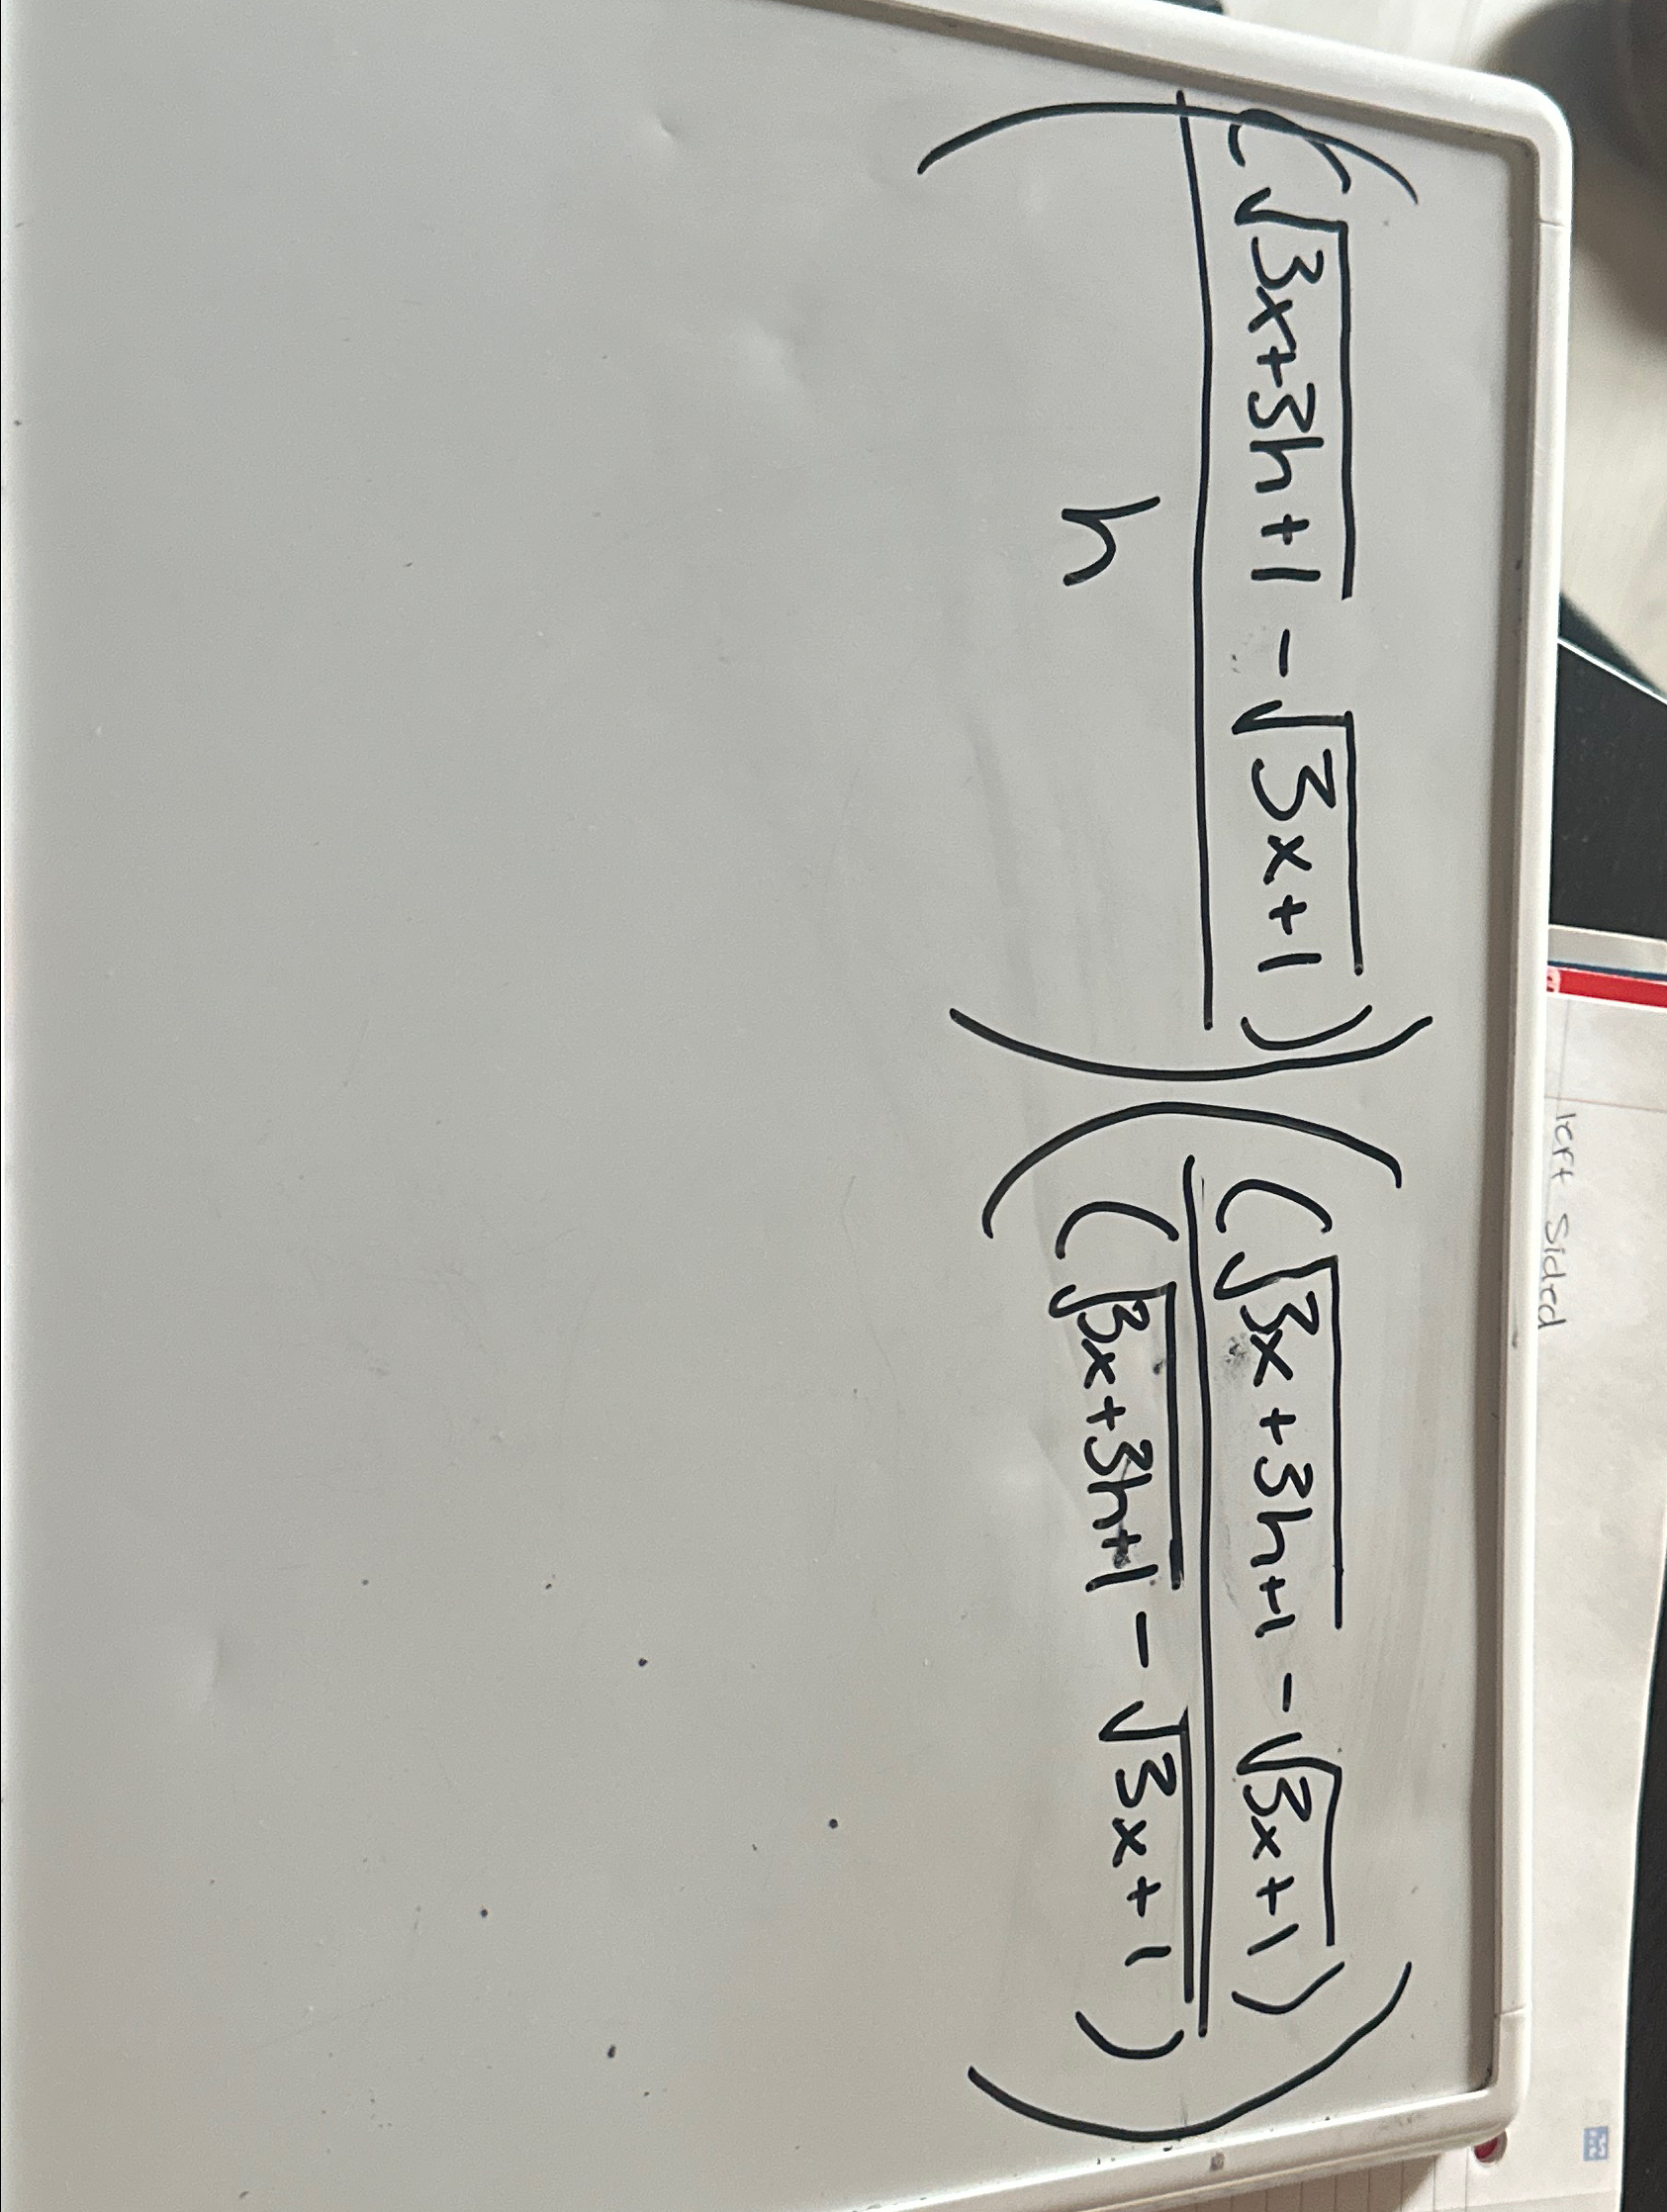 ((√(3x+3h+1) - √(3x+1)) / h) ((√(3x+3h+1) - √(3x+1)) / (√(3x+3h+1) - √(3x+1)))
left sided